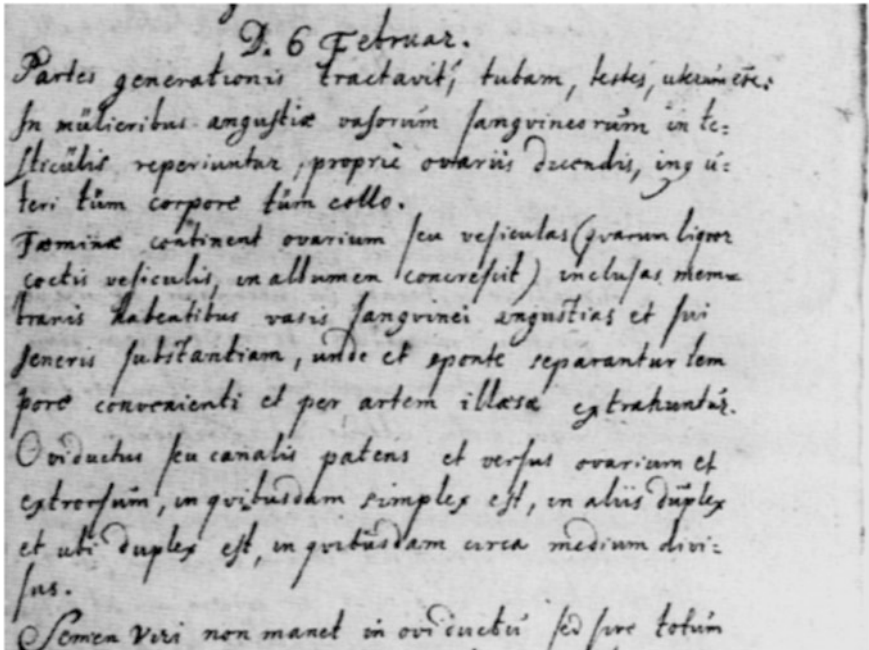 D. 6 Februar.
Partes generationis tractavit, tubam, testes, uterum etc:
In mulieribus angustiæ vasorum sangvineorum in te=
sticulis reperiuntur, propriè ovariis dicendis, inq u=
teri tùm corpore tùm collo.
Fæminæ continent ovarium seu vesiculas (qvarum liqvor
coctis vesiculis, in albumen concrescit) inclusas mem=
branis habentibus vasis sangvinei angustias et sui
generis substantiam, unde et sponte separantur tem
pore convenienti et per artem illæsæ extrahuntur.
Oviductus seu canalis patens et versus ovarium et
extrorsum, in qvibusdam simplex est, in aliis duplex
et ubi duplex est, in qvibusdam circa medium divi=
sus.
Semen viri non manet in oviductu sed sive totum